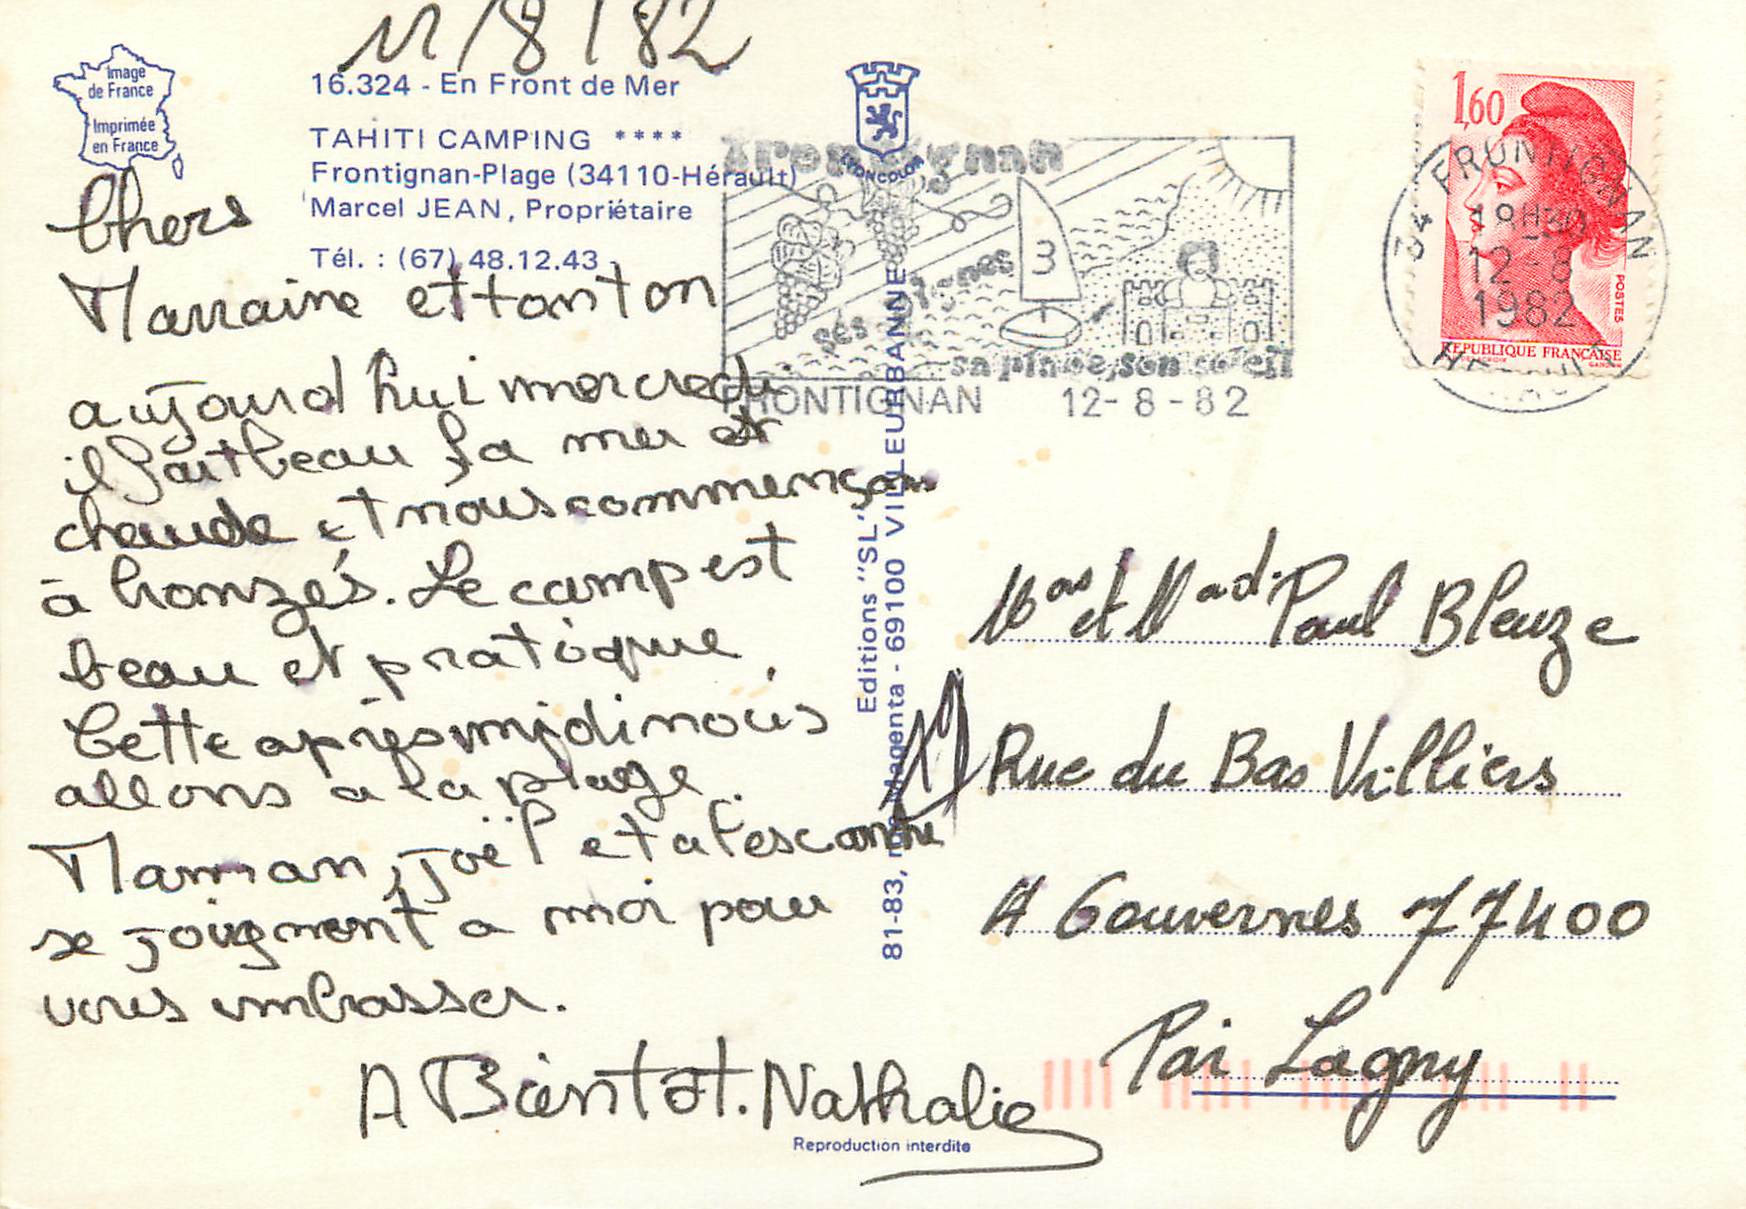 11/8/82
Image
de France
Imprimée
en France
16.324 - En Front de Mer
TAHITI CAMPING ****
Frontignan-Plage (34110-Hérault)
Marcel JEAN, Propriétaire
Tél. : (67) 48.12.43
Chers
Marraine et tonton
aujourd hui mercredi
il fait beau la mer est
chaude et nous commençons
à bronzés. Le camp est
beau et pratique.
Cette après midi nous
allons a la plage.
Maman, joël et
se joignent a moi pour
vous embrasser.
A Bientot. Nathalie
Frontignan
ses vignes
3
sa plage, son soleil
FRONTIGNAN 12-8-82
1,60
POSTES
REPUBLIQUE FRANÇAISE
34 FRONTIGNAN
18H30
12-8
1982
HERAULT
Editions "SL"
81-83, rue Magenta - 69100 VILLEURBANNE
et Mad. Paul Bleuze
19 Rue du Bas Villiers
A Gouvernes 77400
Par Lagny
Reproduction interdite